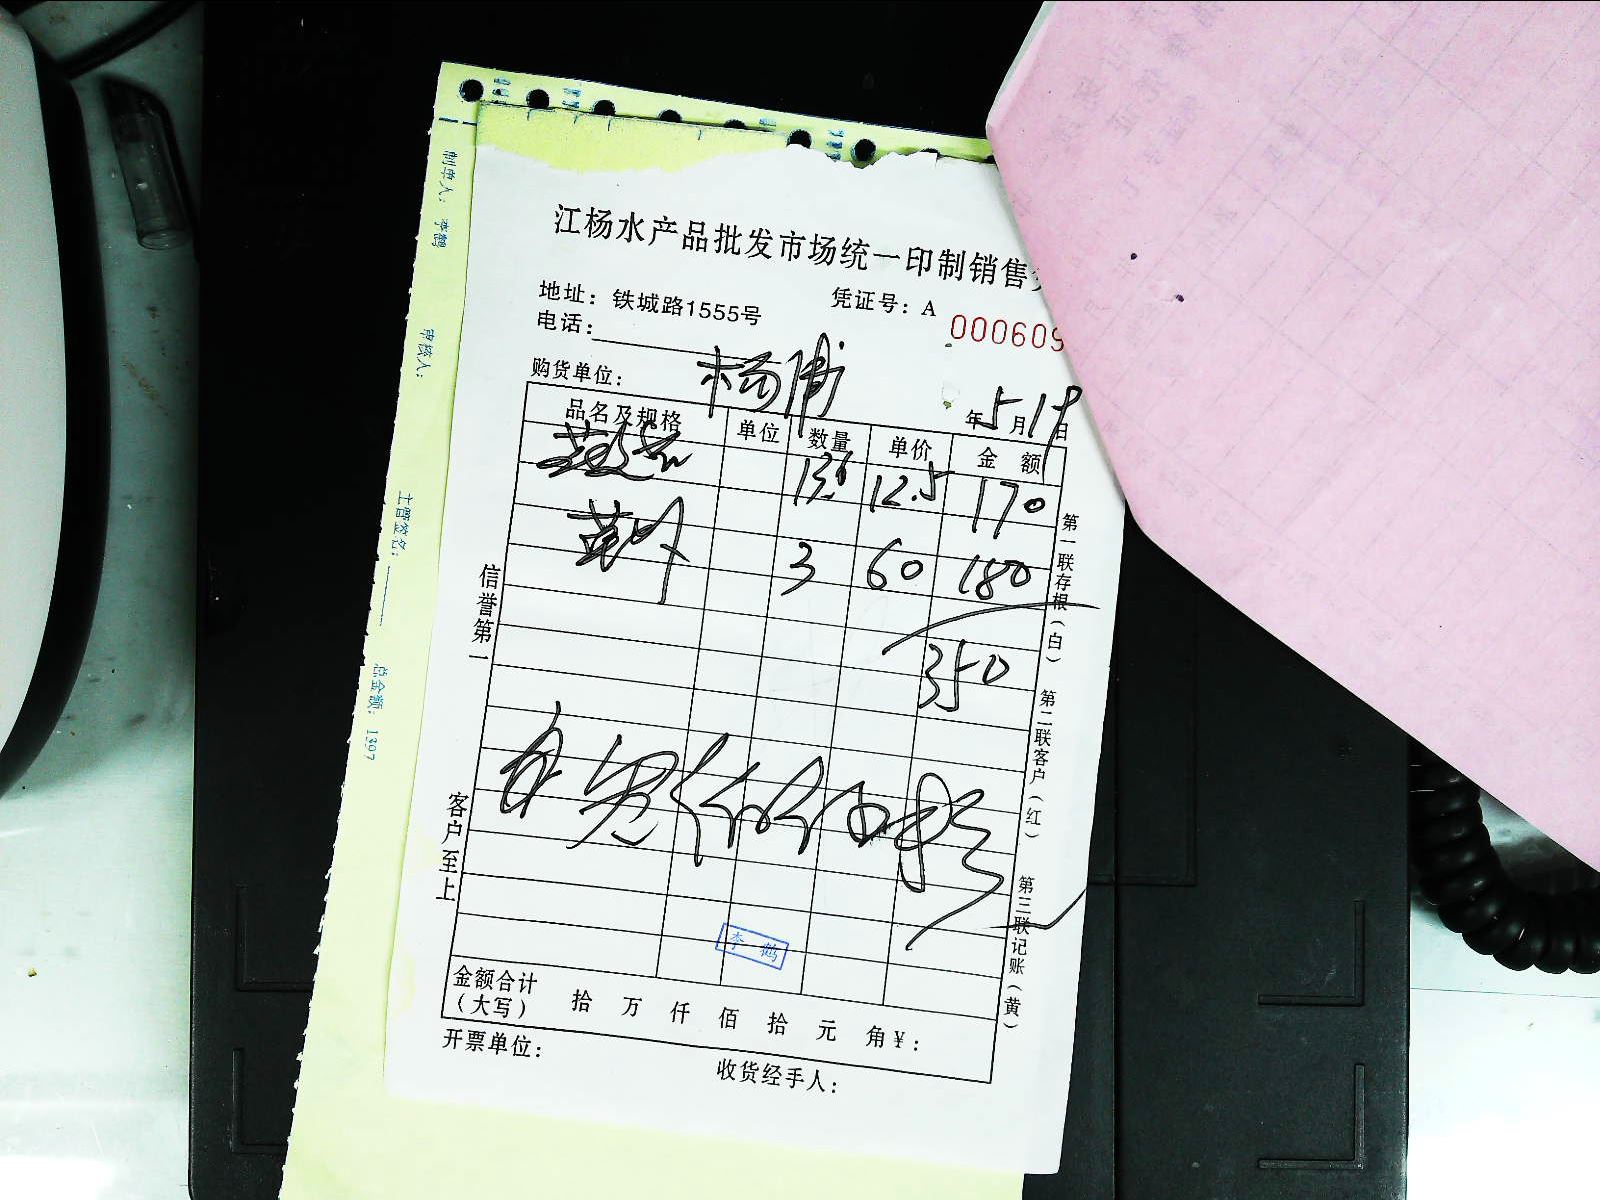 江杨水产品批发市场统一印制销售
地址：铁城路1555号
凭证号：A
000609
电话：
购货单位：
杨浦
年5月19日
品名及规格 单位 数量 单价 金额
13.6 12.5 170
3 60 180
350
信誉第一
客户至上
李鹤
金额合计
（大写）
拾 万 仟 佰 拾 元 角 ¥：
开票单位：
收货经手人：
第一联存根（白）
第二联客户（红）
第三联记账（黄）
制单人：李鹤
审核人：
主管签名：
总金额：1397